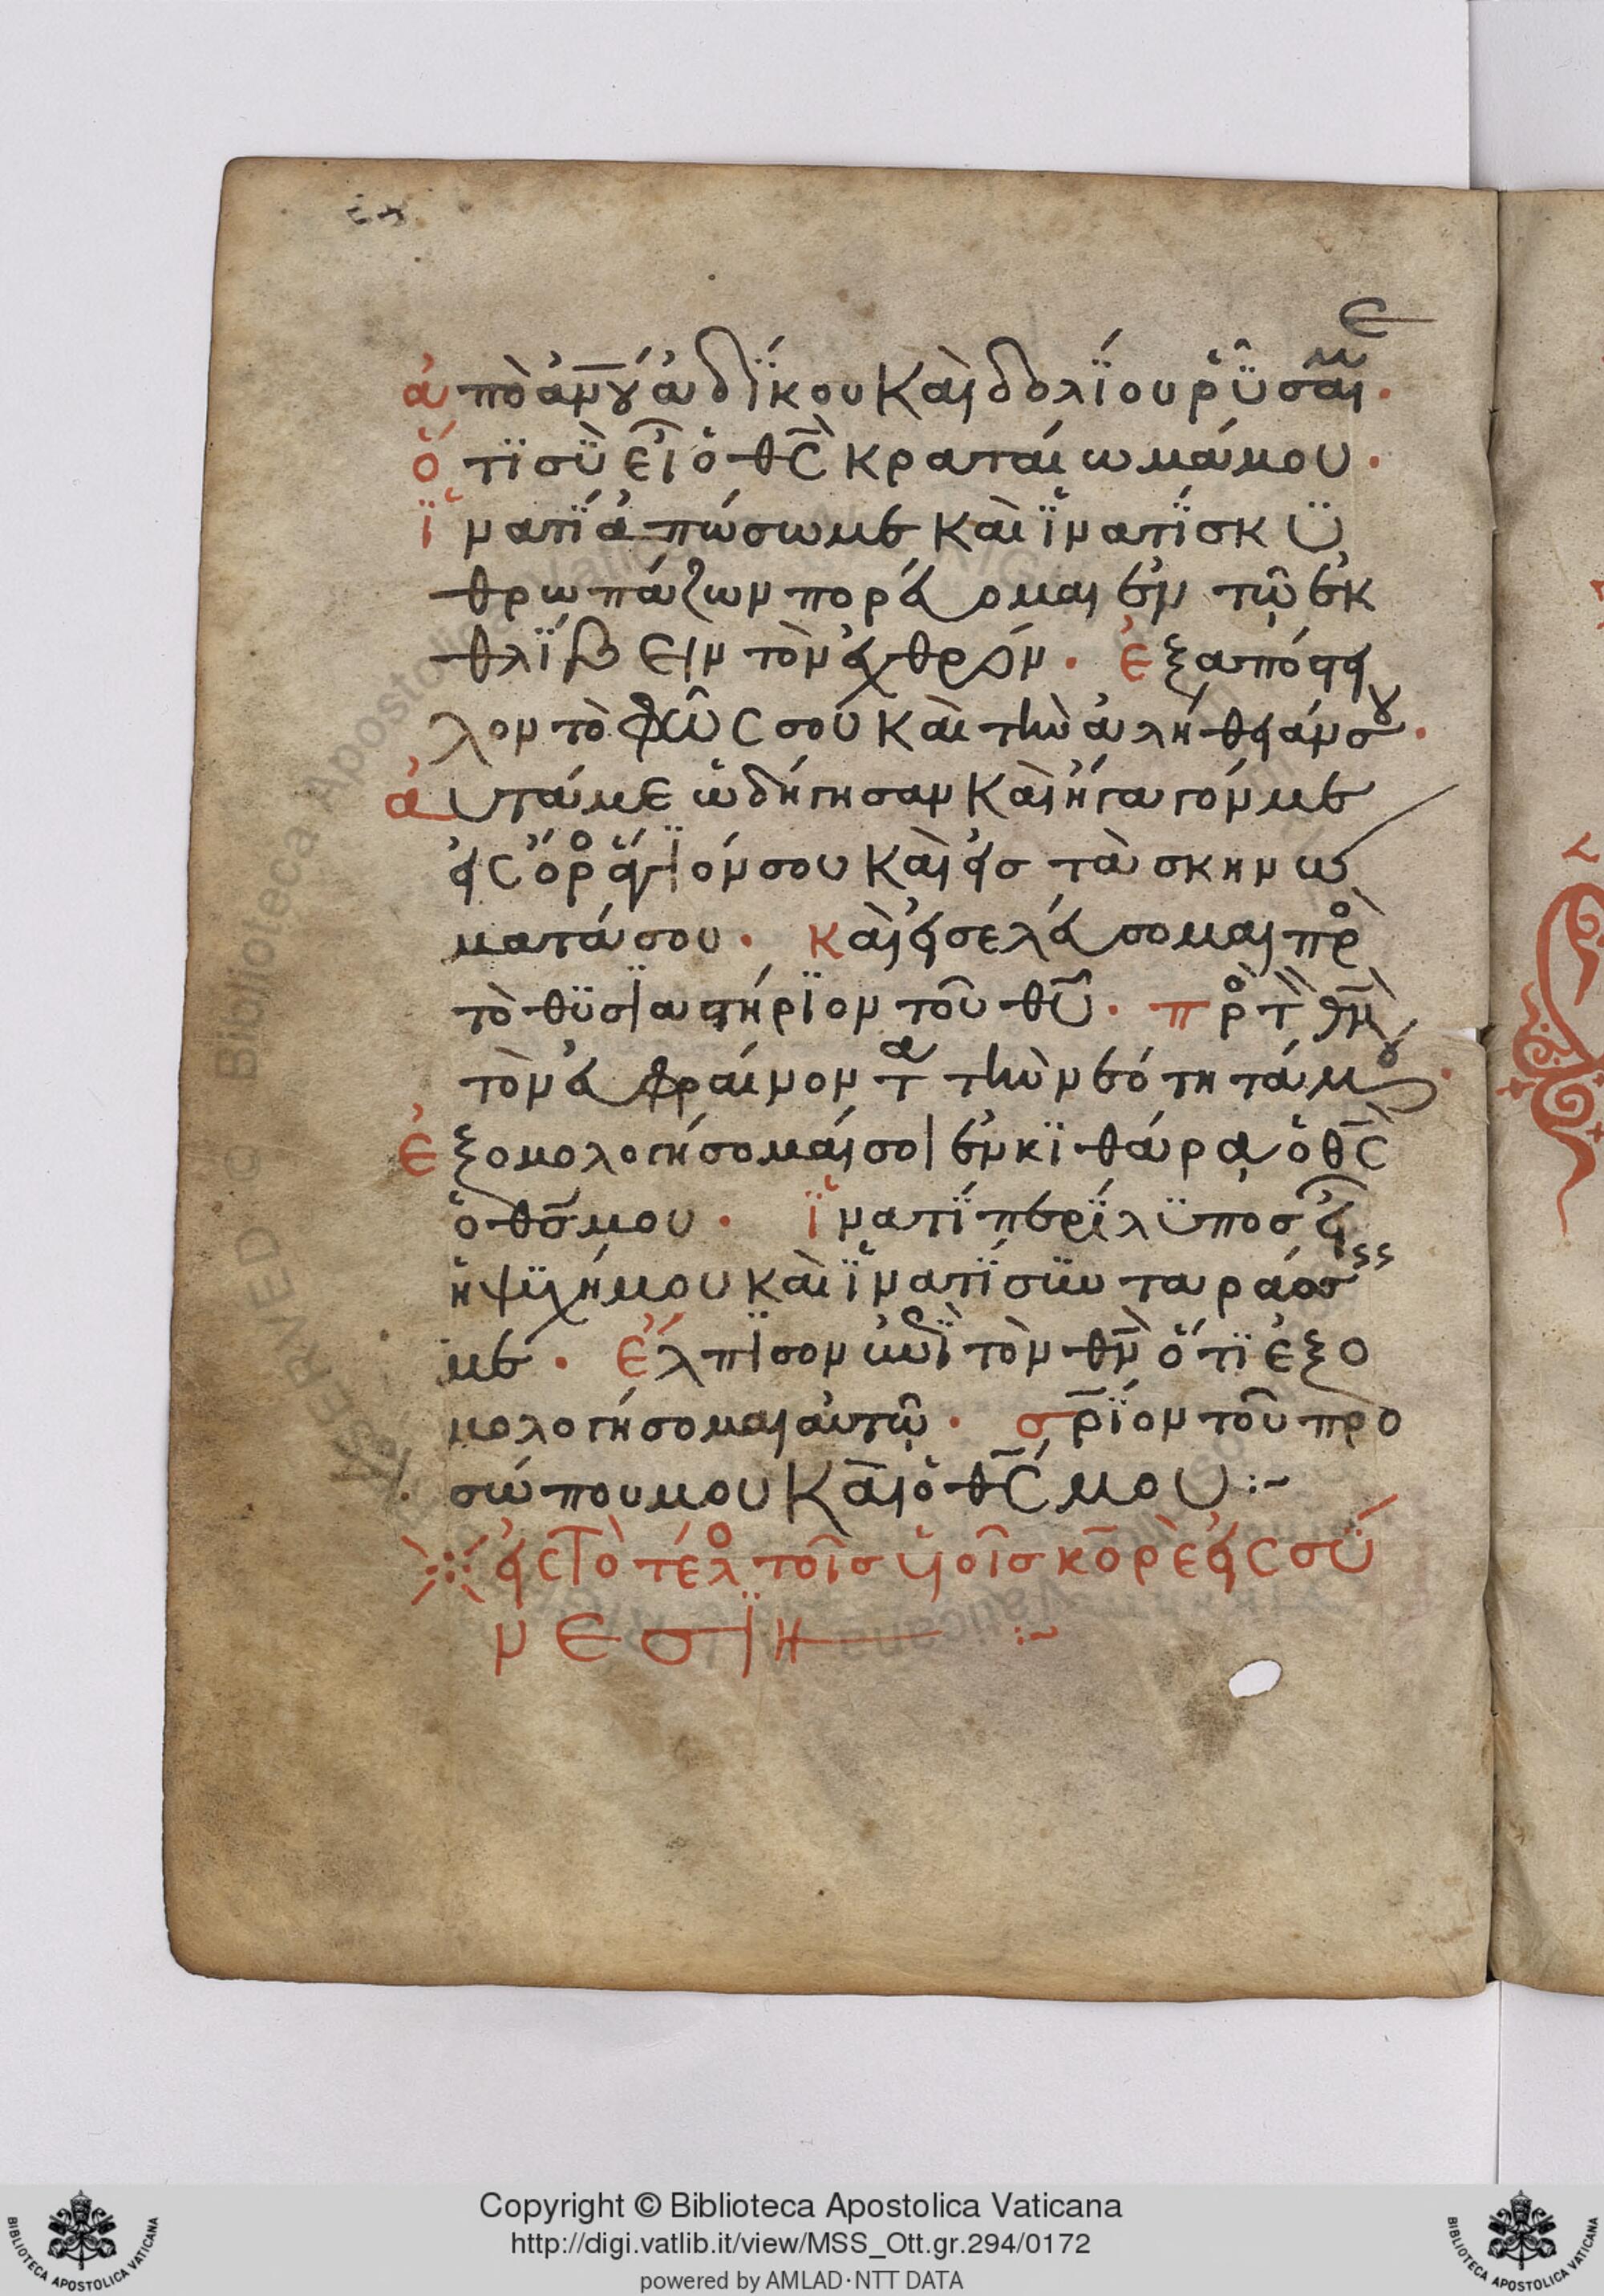 ε
ἀπὸ ἀνου ἀδίκου καὶ δολίου ῥῦσαί με·
ὅτι σὺ εἶ ὁ θς κραταίωμά μου·
ἱνατί ἀπώσω με καὶ ἱνατί σκυ
θρωπάζων πορεύομαι ἐν τῶ ἐκ
θλίβειν τὸν ἐχθρόν· ἐξαπόστει
λον τὸ φῶς σου καὶ τὴν ἀλήθειάν σου·
αὐτά με ὡδήγησαν καὶ ἤγαγόν με
εἰς ὄρος ἅγιόν σου καὶ εἰς τὰ σκηνώ
ματά σου· καὶ εἰσελεύσομαι πρὸς
τὸ θυσιαστήριον τοῦ θυ· πρὸς τὸν θν
τὸν εὐφραίνοντα τὴν νεότητά μου·
ἐξομολογήσομαί σοι ἐν κιθάρα ὁ θς
ὁ θς μου· ἱνατί περίλυπος εἶ
ἡ ψυχή μου καὶ ἱνατί συνταράσσεις
με· ἔλπισον ἐπὶ τὸν θν ὅτι ἐξο
μολογήσομαι αὐτῶ· σριον τοῦ προ
σώπου μου καὶ ὁ θς μου :~
εἰς τὸ τέλος τοῖς υἱοῖς κορὲ εἰς σύ
νεσιν :~
Copyright © Biblioteca Apostolica Vaticana
http://digi.vatlib.it/view/MSS_Ott.gr.294/0172
powered by AMLAD·NTT DATA
BIBLIOTECA APOSTOLICA VATICANA
BIBLIOTECA APOSTOLICA VATICANA